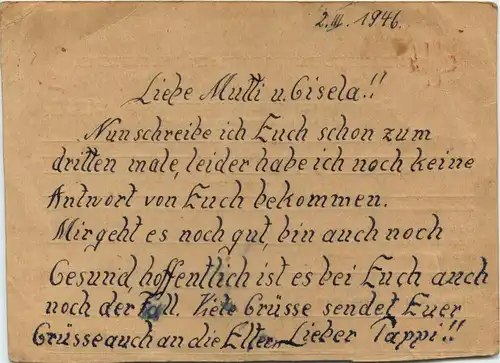 2. III. 1946.
Liebe Mutti u. Gisela!!
Nun schreibe ich Euch schon zum
dritten male, leider habe ich noch keine
Antwort von Euch bekommen.
Mir geht es noch gut, bin auch noch
Gesund, hoffentlich ist es bei Euch auch
noch der Fall. Viele Grüsse sendet Euer
Grüsse auch an die Eltern Lieber Pappi!!